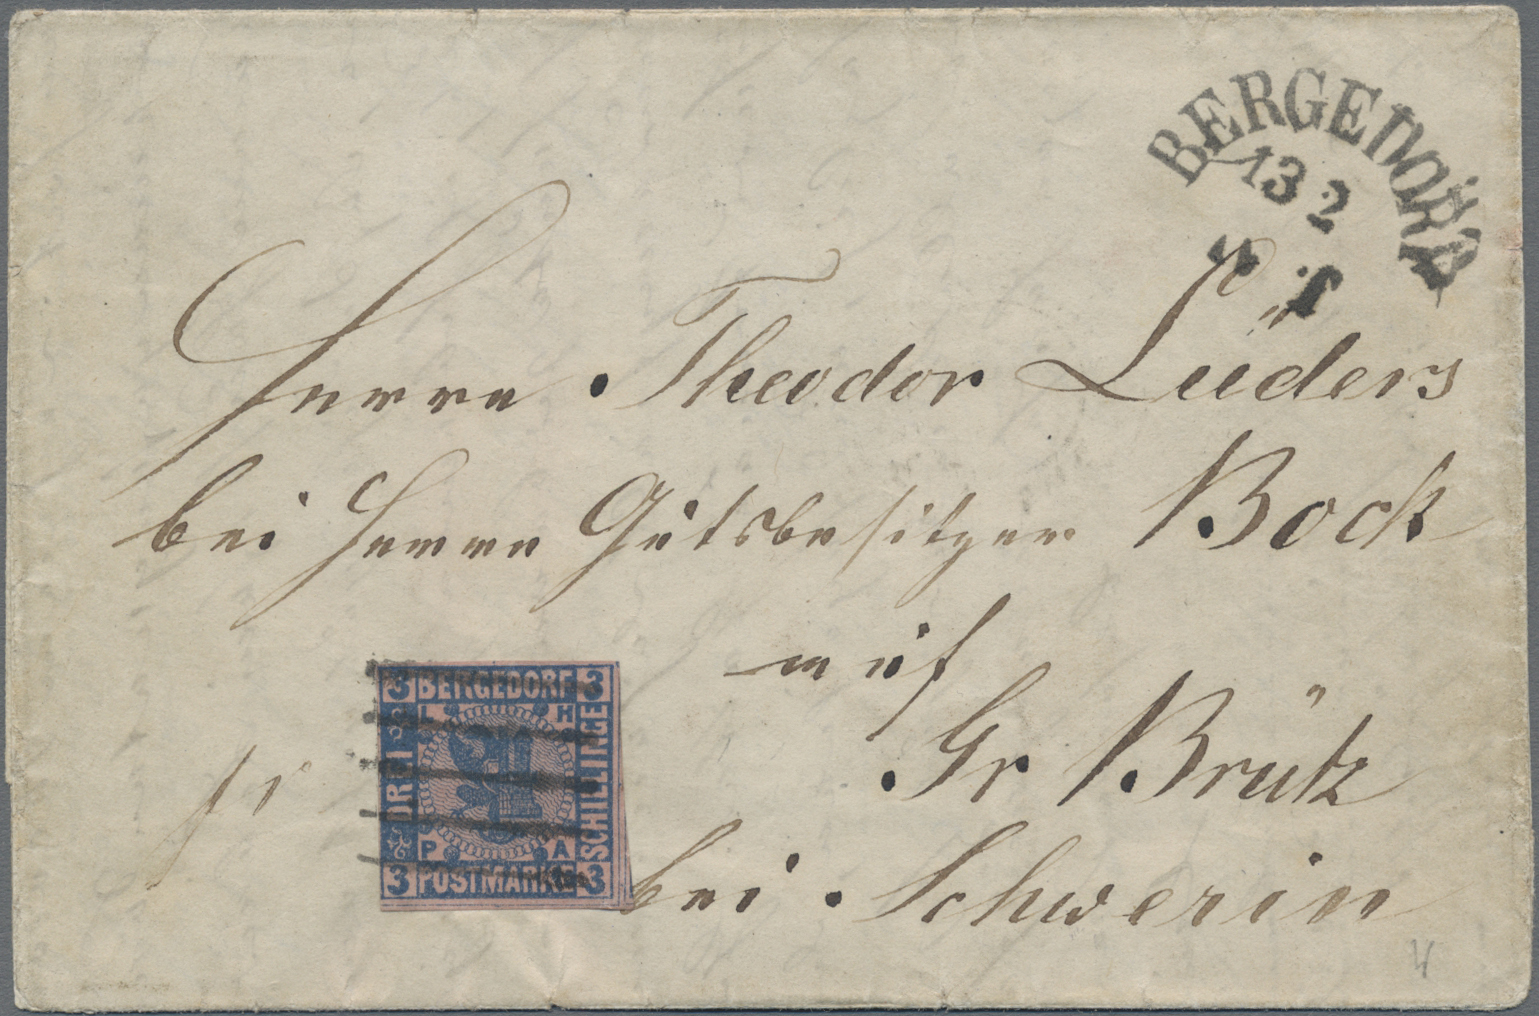 BERGEDORF
13 2
Herrn Theodor Lüders
bei Herrn Gutsbesitzer Bock
auf
Gr Brütz
fr
bei Schwerin
3 BERGEDORF 3
L H
DREI
SCHILLINGE
P A
3 POSTMARKE 3